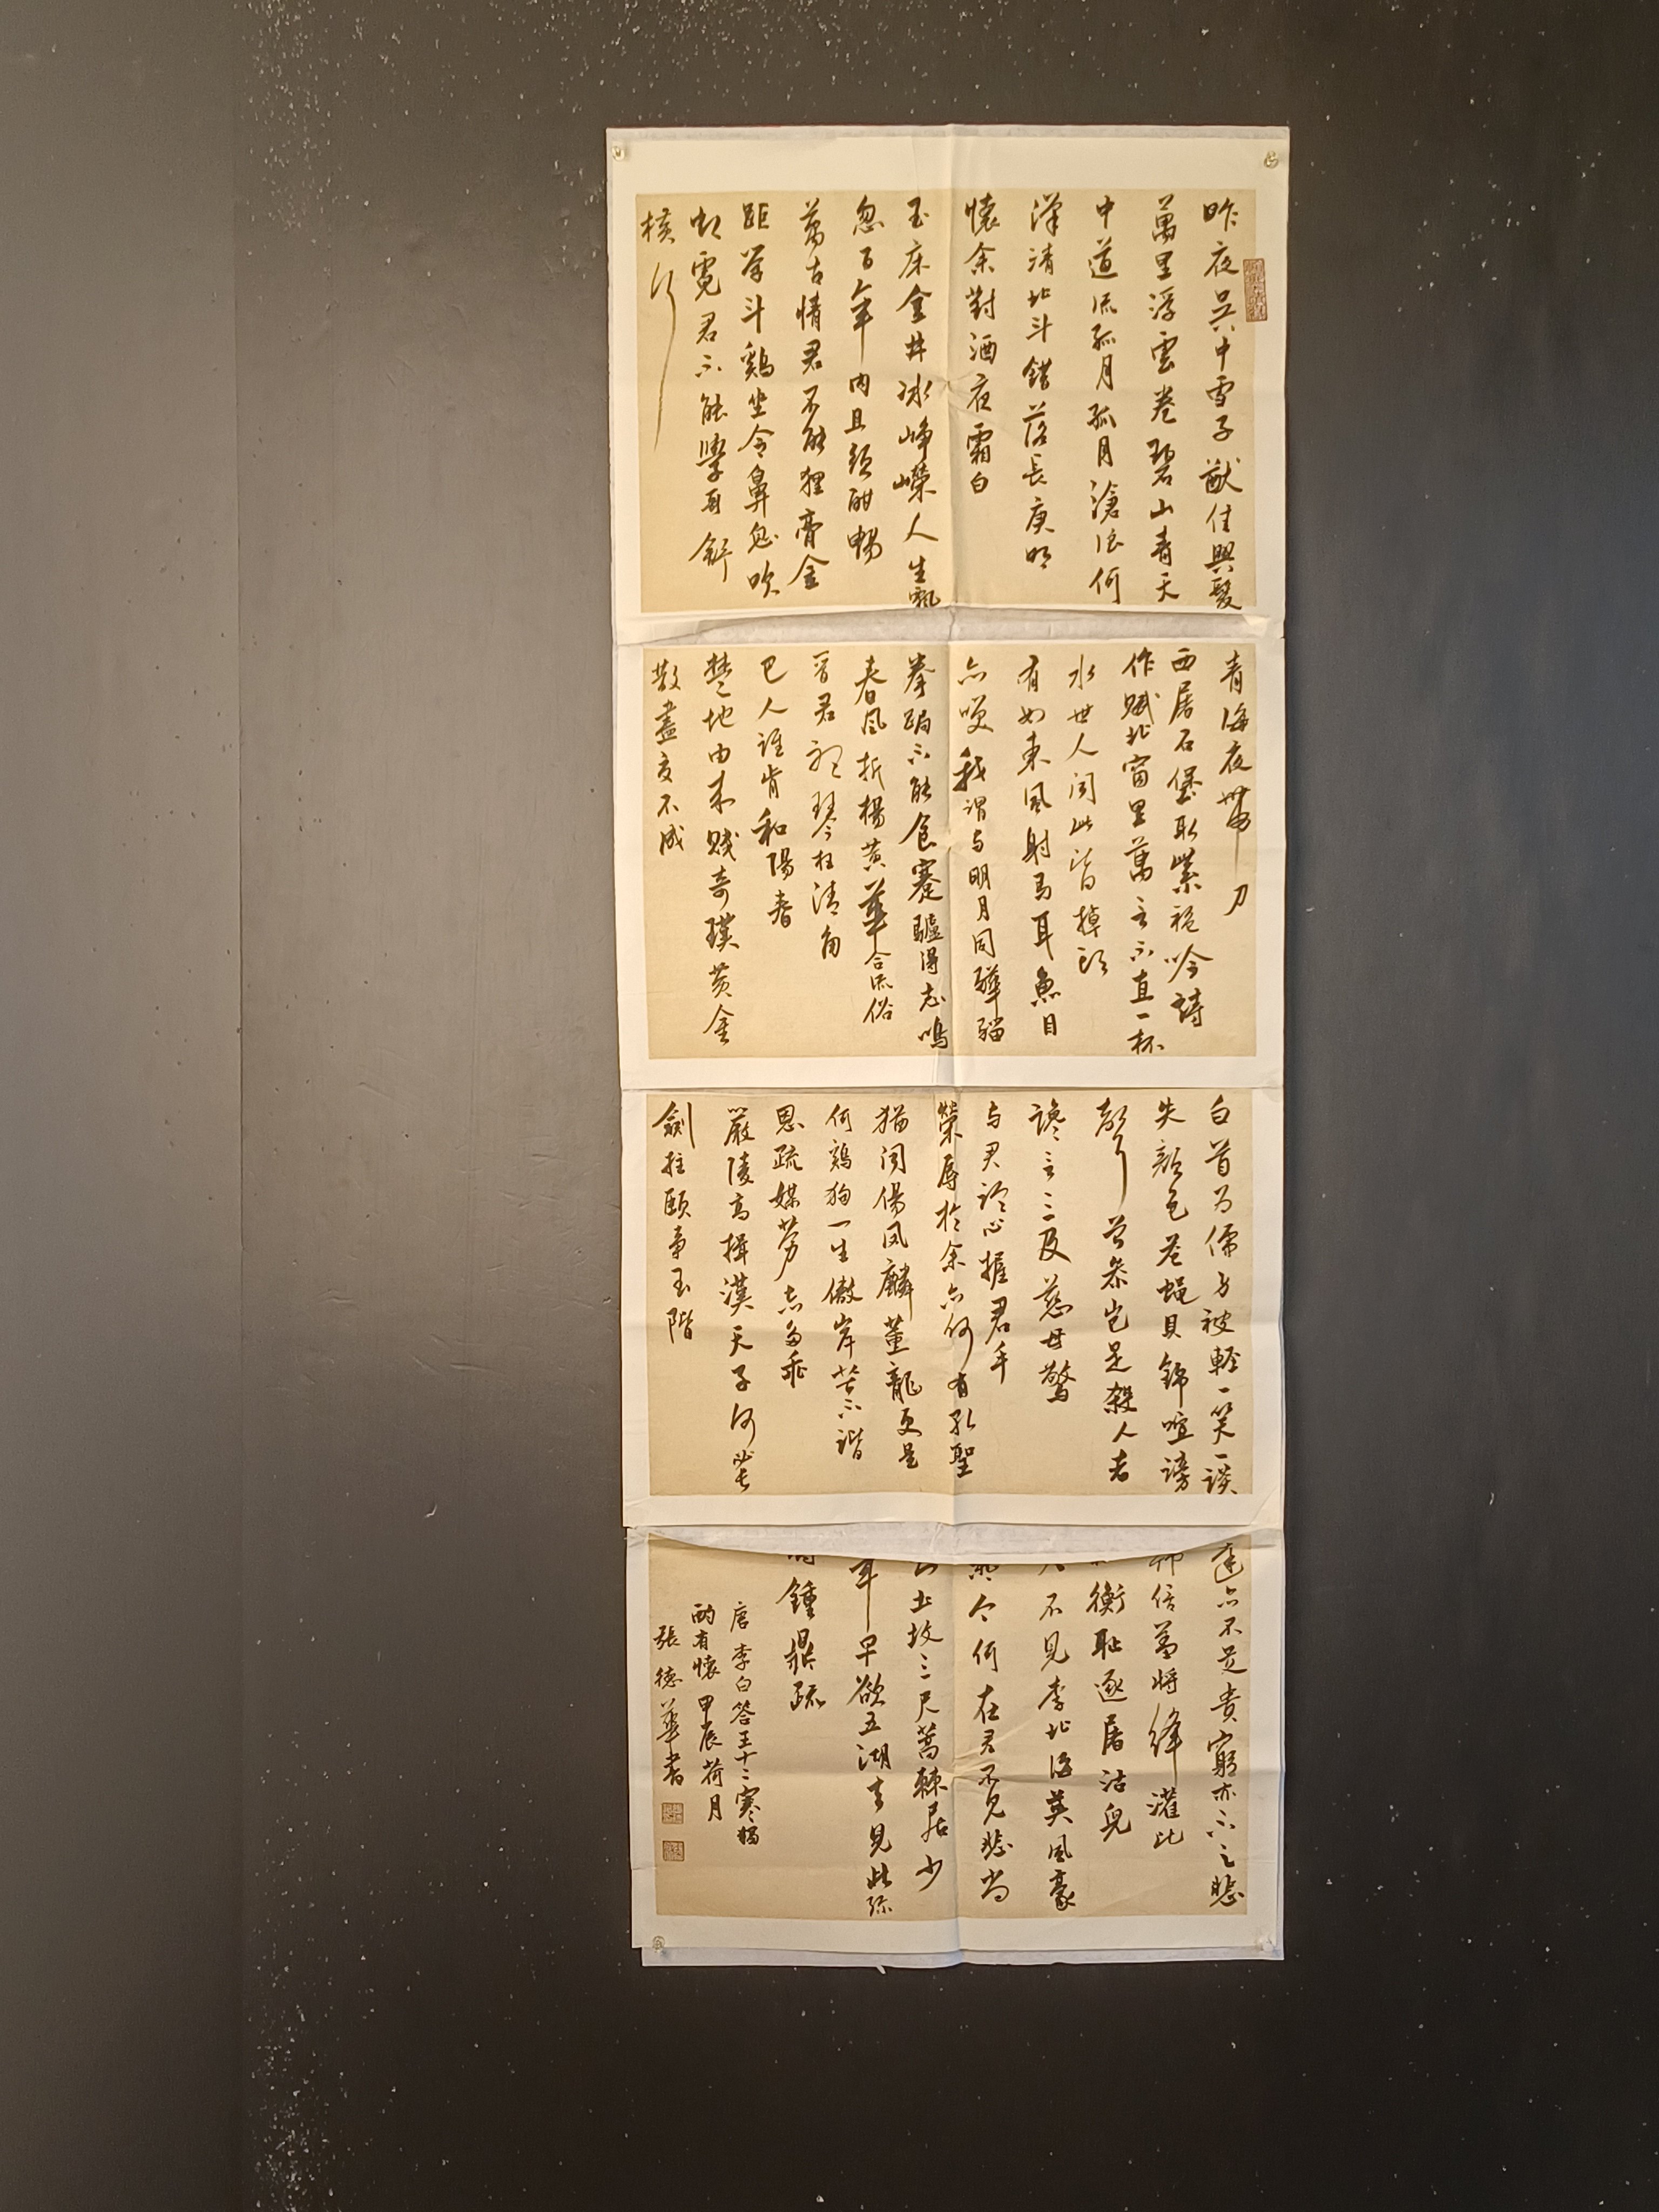 昨夜吴中雪子猷佳興發
萬里浮雲卷碧山青天
中道流孤月孤月滄浪何
漢清北斗錯落長庚明
懷余對酒夜霜白
玉床金井冰崢嶸人生飄
忽百年內且須酣暢
萬古情君不能狸膏金
距學斗鷄坐令鼻息吹
虹霓君不能學哥舒
橫行
青海夜帶刀
西屠石堡取紫袍吟詩
作賦北窗里萬言不直一杯
水世人聞此皆掉頭
有如東風射馬耳魚目
亦笑我謂与明月同驊騮
拳跼不能食蹇驢得志鳴
春風折楊黃華合流俗
晉君聽琴枉清角
巴人誰肯和陽春
楚地由來賤奇璞黃金
散盡交不成
白首為儒身被輕一笑一談
失顏色蒼蠅貝錦喧謗
聲曾參豈是殺人者
讒言三及慈母驚
与君論心握君手
榮辱於余亦何有孔聖
猶聞傷鳳麟董龍更是
何鷄狗一生傲岸苦不諧
恩疏媒勞志多乖
嚴陵高揖漢天子何必長
劍拄頤事玉階
達亦不足貴窮亦不之悲
信羞將絳灌比
衡恥逐屠沽兒
不見李北海英風豪
氣今何在君不見裴尚
土坟三尺蒿棘居少
年早欲五湖去見此弥
鍾鼎疏
唐李白答王十二寒夜獨
酌有懷甲辰荷月
張德華書